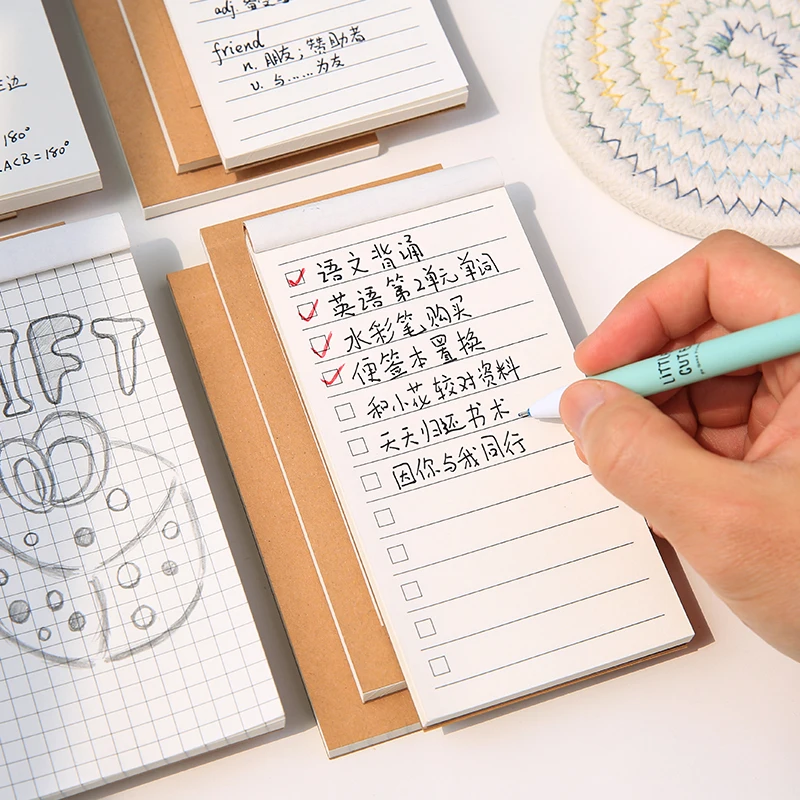 adj.
friend
n. 朋友；赞助者
v. 与……为友
边
180°
ACB=180°
IFT
语文背诵
英语第2单元单词
水彩笔购买
便签本置换
和小花较对资料
天天归还书术
因你与我同行